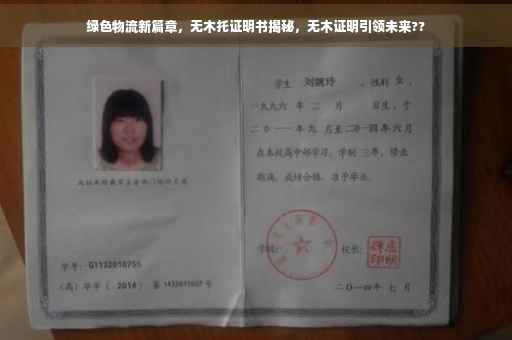 绿色物流新篇章，无木托证明书揭秘，无木证明引领未来??
学生 刘婉玲 ，性别 女 ，
一九九六 年 二 月 日生，于
二〇一一 年 九 月至 二〇一四 年 六 月
在本校高中部学习，学制 三 年，修业
期满，成绩合格，准予毕业。
学校：
校长：
学号：G1132010755
（高）毕字（ 2014 ）第 1432011607 号
二〇一四年 七 月